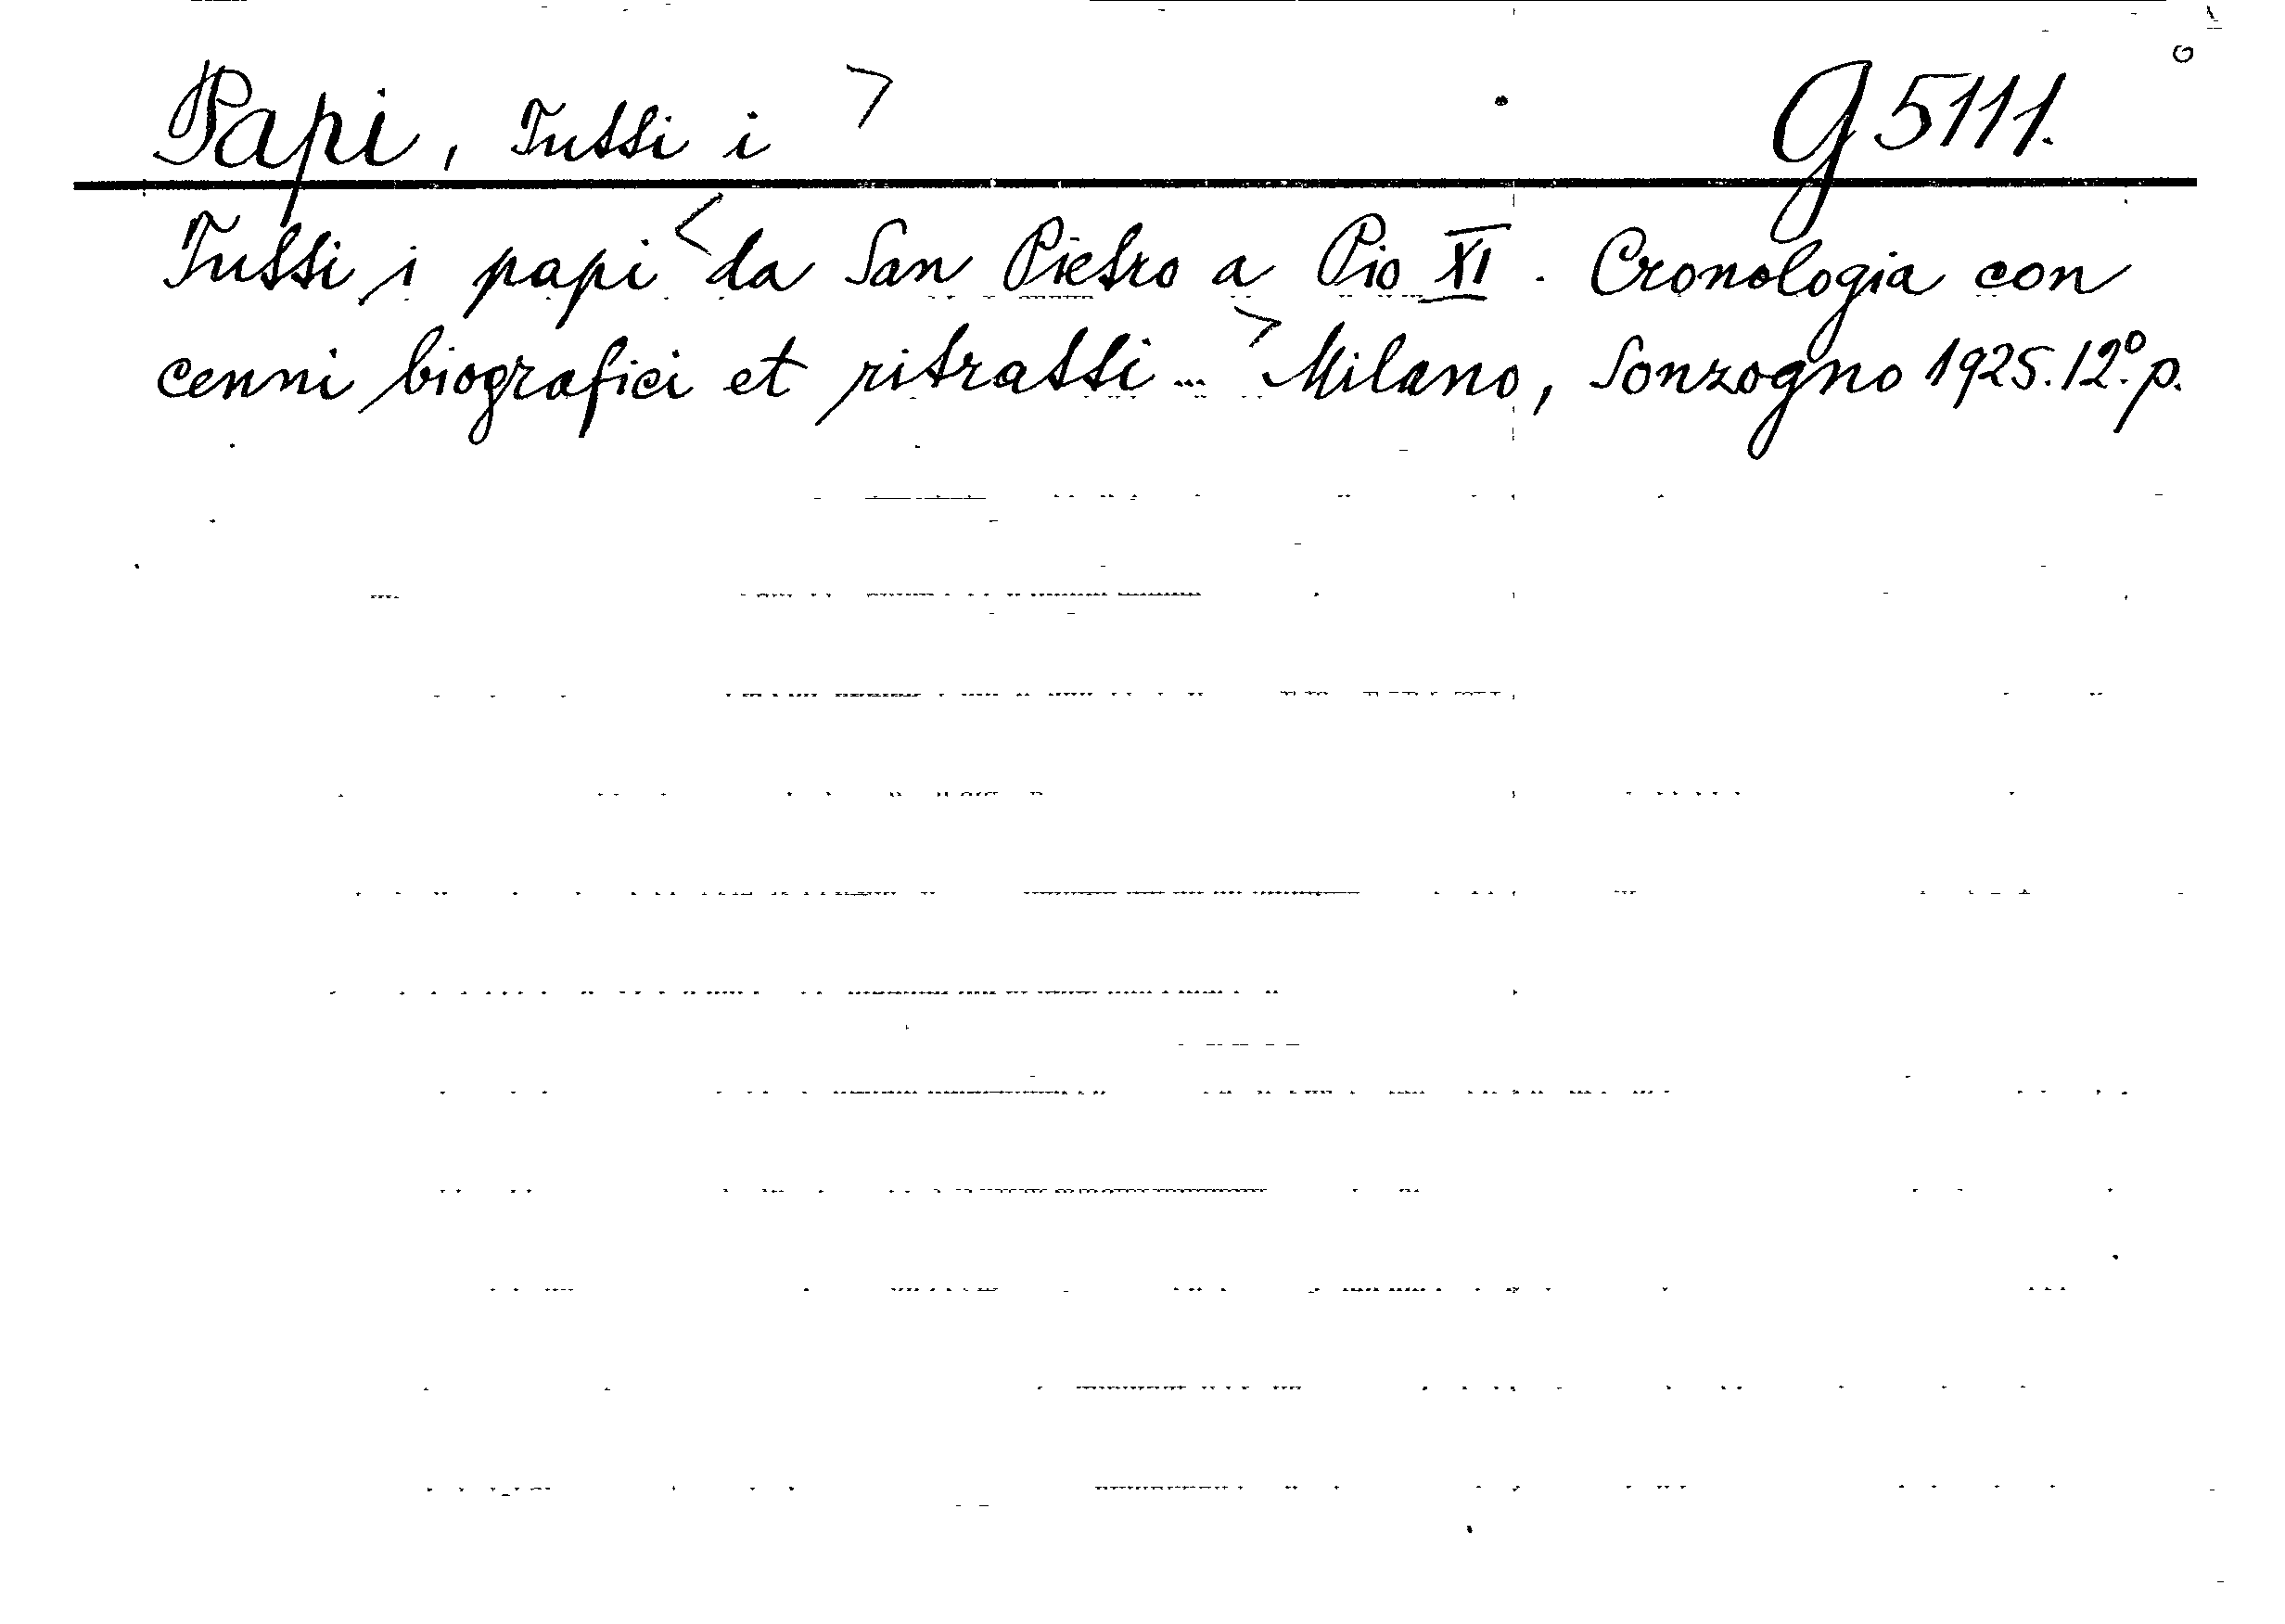 Papi, Tutti i > G 5111.
Tutti i papi < da San Pietro a Pio XI. Cronologia con
cenni biografici et ritratti ... > Milano, Sonzogno 1925. 12º. p.